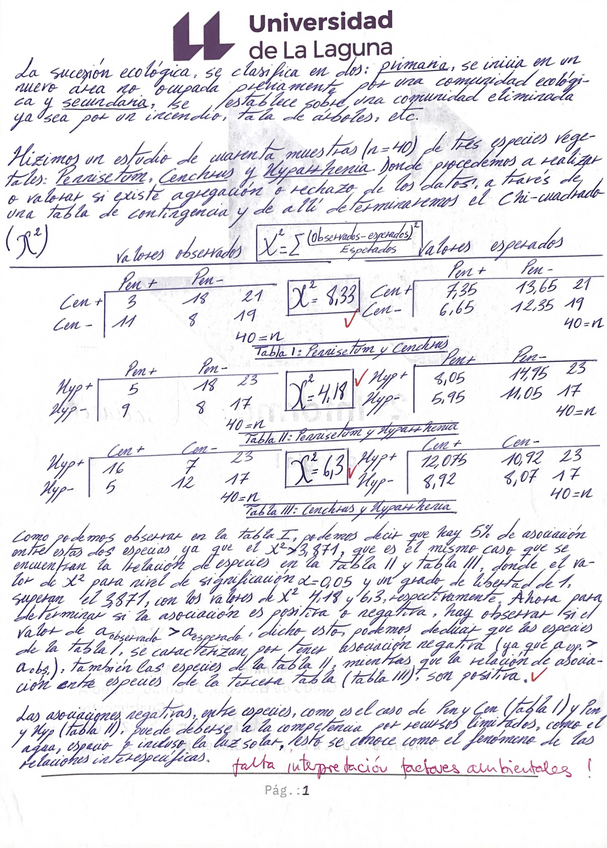 Universidad
de La Laguna
La sucesión ecológica, se clasifica en dos: primaria, se inicia en un
nuevo área no ocupada previamente por una comunidad ecológi-
ca y secundaria, se establece sobre una comunidad eliminada
ya sea por un incendio, tala de árboles, etc.
Hizimos un estudio de cuarenta muestras (n=40) de tres especies vege-
tales: Pennisetum, Cenchrus y Hyparrhenia. Donde procedemos a realizar
o valorar si existe agregación o rechazo de los datos, a través de
una tabla de contingencia y de allí determinaremos el Chi-cuadrado
(X²)
valores observados X²=Σ (Observados-esperados)² / Esperados Valores esperados
Pen + Pen- Pen+ Pen-
Cen + 3 18 21 X²= 8,33 Cen + 7,35 13,65 21
Cen - 11 8 19 Cen- 6,65 12,35 19
40=n 40=n
Tabla I: Pennisetum y Cenchrus
Pen+ Pen- Pen+ Pen-
Hyp+ 5 18 23 X²= 4,18 Hyp+ 8,05 14,95 23
Hyp- 9 8 17 Hyp- 5,95 11,05 17
40=n 40=n
Tabla II: Pennisetum y Hyparrhenia
Cen+ Cen- Cen + Cen -
Hyp+ 16 7 23 X²= 6,3 Hyp+ 12,075 10,92 23
Hyp- 5 12 17 Hyp- 8,92 8,07 17
40=n 40=n
Tabla III: Cenchrus y Hyparrhenia
Como podemos observar en la tabla I, podemos decir que hay 5% de asociación
entre estas dos especies ya que el X²>3,871, que es el mismo caso que se
encuentran la relación de especies en la tabla II y Tabla III, donde, el va-
lor de X² para nivel de significación α=0,05 y un grado de libertad de 1,
superan el 3,871, con los valores de X² 4,18 y 6,3, respectivamente. Ahora para
determinar si la asociación es positiva o negativa, hay observar si el
valor de a observado > a esperado, dicho esto, podemos deducir que las especies
de la tabla I, se caracterizan por tener asociación negativa (ya que a esp. >
a obs.), también las especies de la tabla II, mientras, que la relación de asocia-
ción entre especies de la tercera tabla (tabla III), son positiva.
Las asociaciones negativas, entre especies, como es el caso de Pen y Cen (tabla I) y Pen
y Hyp (tabla II), puede deberse a la competencia por recursos limitados, como el
agua, espacio o incluso la luz solar, esto se conoce como el fenómeno de las
relaciones interespecíficas. falta interpretación factores ambientales !
Pág.:1